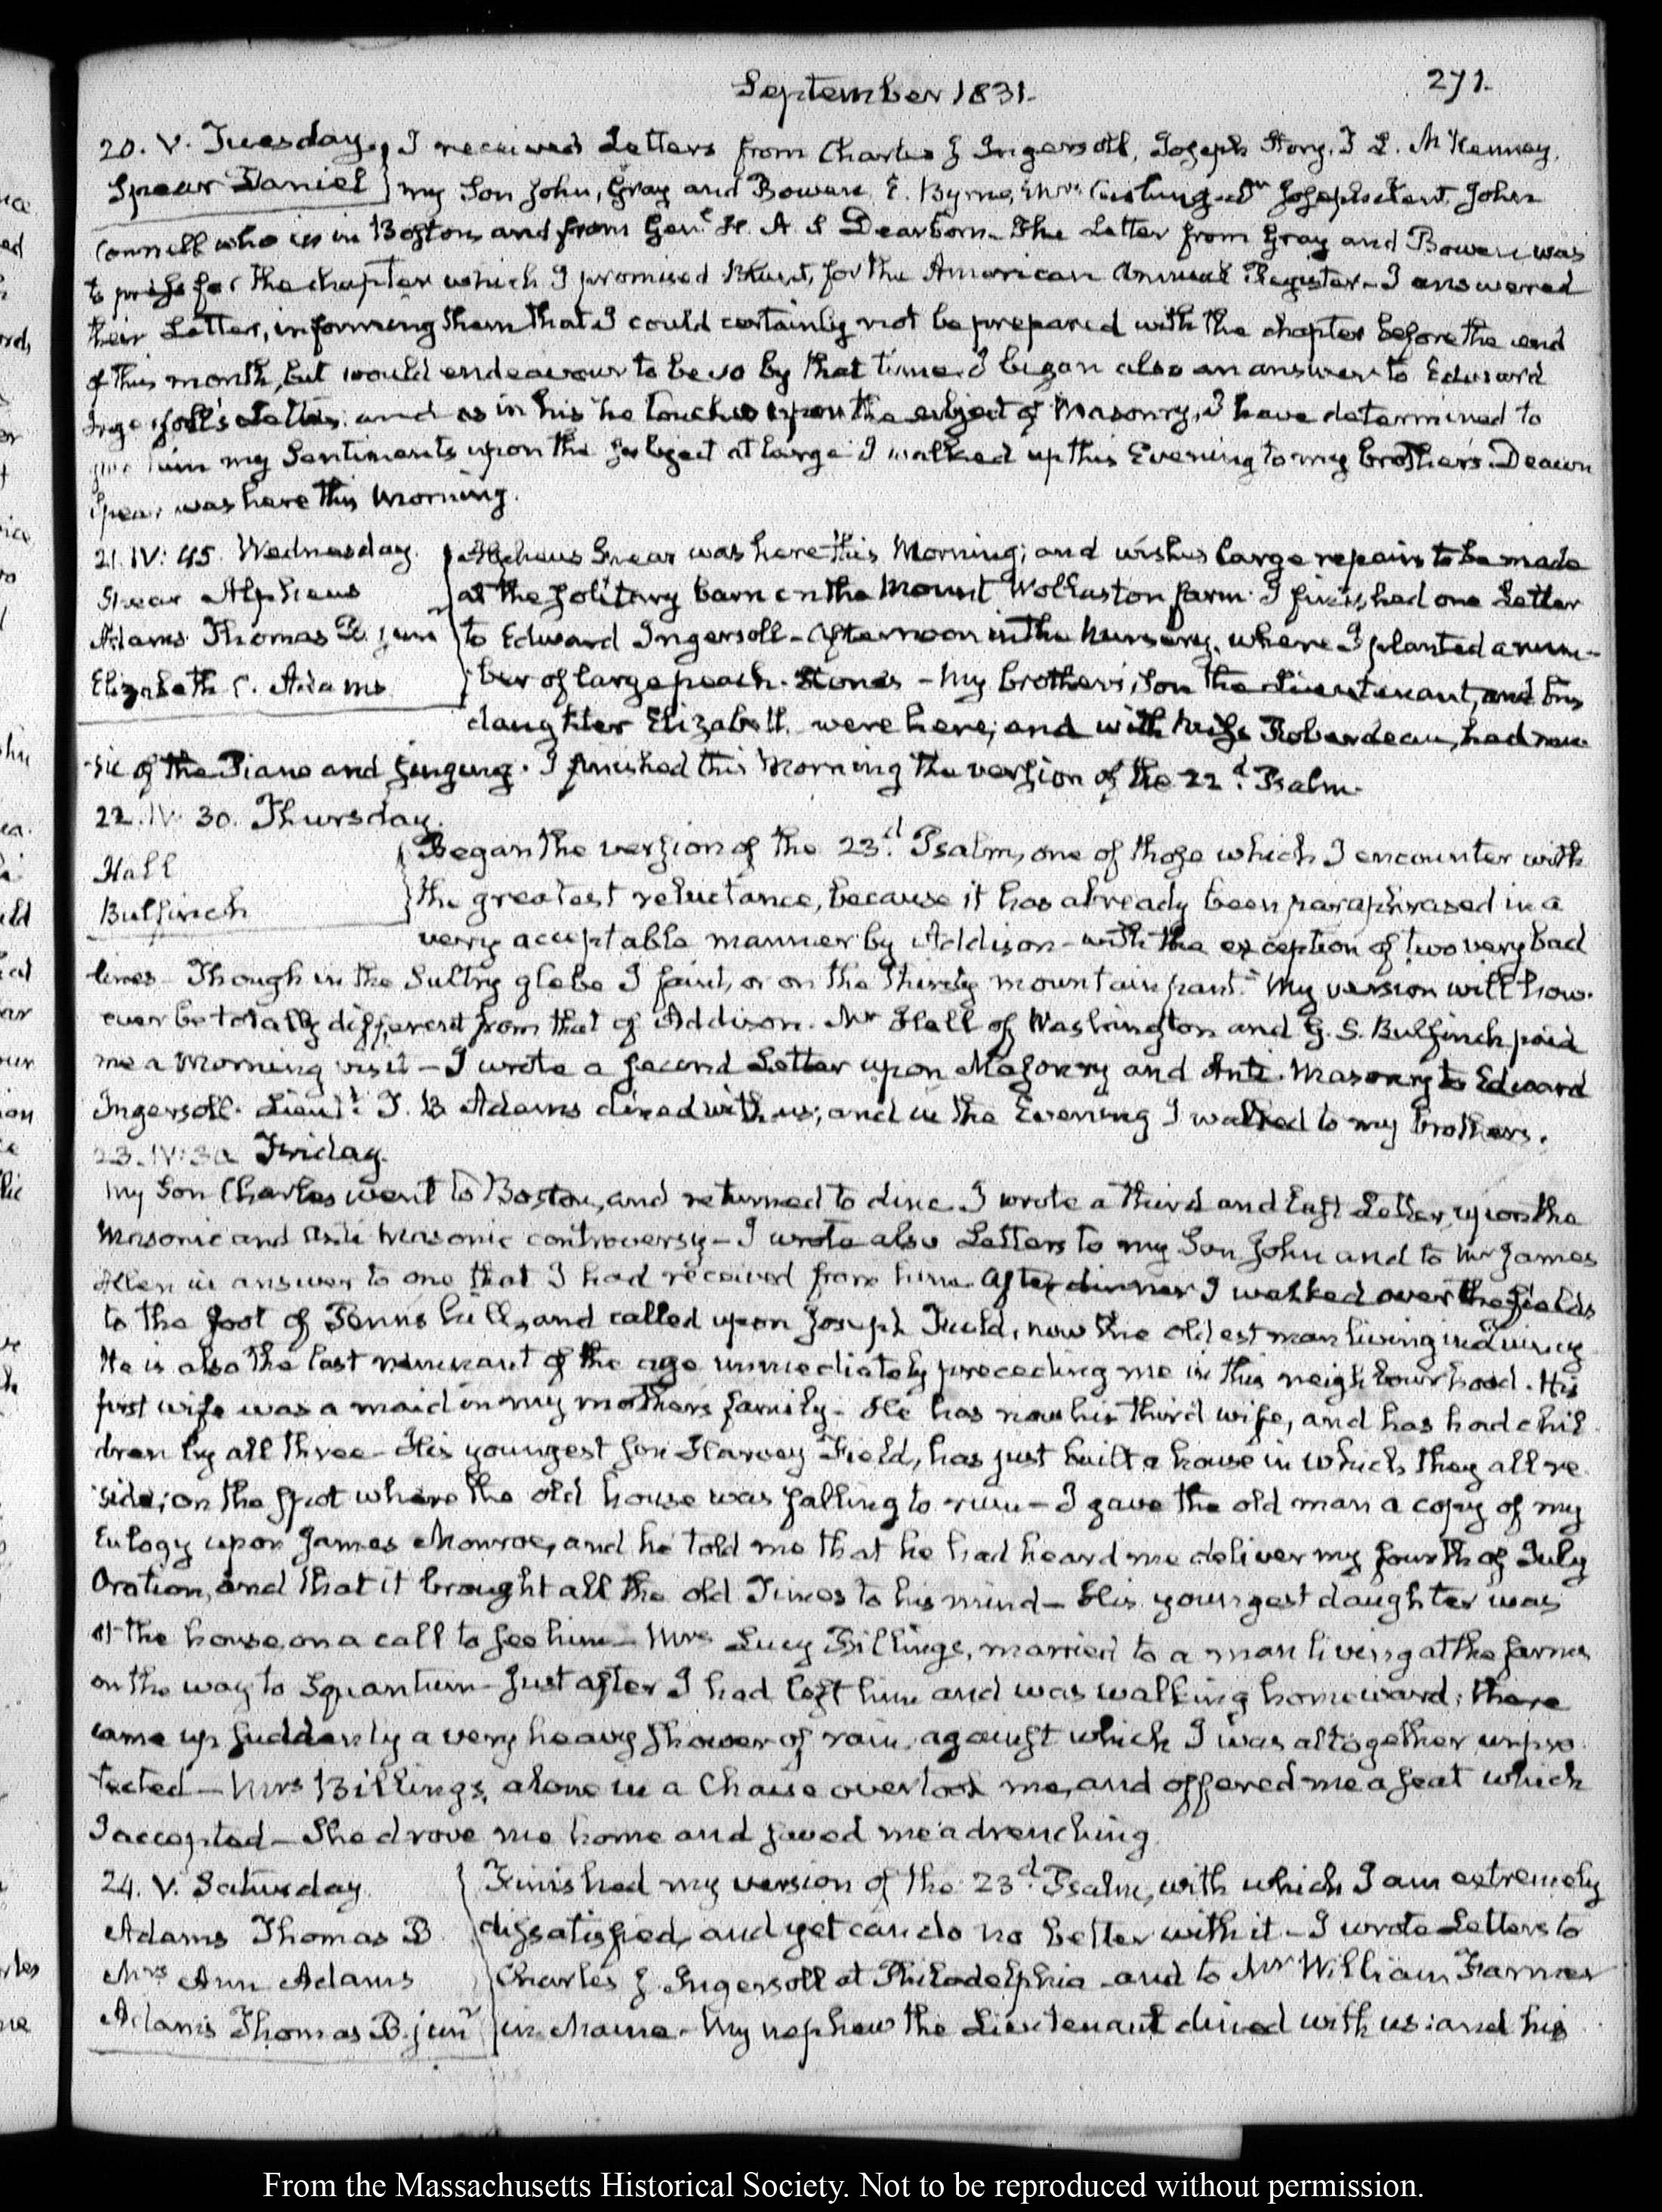 September 1831.
271.
20. V. Tuesday. } I received Letters from Charles J Ingersoll, Joseph Story, T. L. McKenney,
Spear Daniel } my Son John, Gray and Bowen, E. Byrne, Mrs Cushing Joseph Kent, John
Connell who is in Boston, and from Genl. H. A. S Dearborn. The Letter from Gray and Bowen was
to press for the chapter which I promised Blunt, for the American Annual Register. I answered
their Letter, informing them that I could certainly not be prepared with the chapter before the end
of this month, but would endeavour to be so by that time. I began also an answer to Edward
Ingersoll's Letter; and as in his he touches upon the subject of Masonry, I have determined to
give him my Sentiments upon the subject at large. I walked up this Evening to my brother's. Deacon
Spear was here this Morning.
21. IV: 45. Wednesday.
Spear Alpheus
Adams Thomas B. junr
Elizabeth C. Adams
Alpheus Spear was here this Morning; and wishes large repairs to be made
at the solitary barn on the Mount Wollaston farm. I finished one Letter
to Edward Ingersoll — Afternoon in the Nursery, where I planted a num-
ber of large peach-stones — My brother's, Son the Lieutenant, and his
daughter Elizabeth were here; and with Miss Roberdeau, had mu-
sic of the Piano and singing. I finished this Morning the version of the 22d. Psalm.
22. IV. 30. Thursday.
Hall
Bulfinch
Began the version of the 23d. Psalm, one of those which I encounter with
the greatest reluctance, because it has already been paraphrased in a
very acceptable manner by Addison — with the exception of two very bad
lines — Though in the Sultry glebe I faint, or on the thirsty mountain pant." My version will how-
ever be totally different from that of Addison. Mr Hall of Washington and G. S. Bulfinch paid
me a Morning visit — I wrote a second Letter upon Masonry and Anti-Masonry to Edward
Ingersoll. Lieutt. T. B Adams dined with us; and in the Evening I walked to my brothers.
23. IV: 30. Friday.
My Son Charles went to Boston, and returned to dine. I wrote a third and last Letter, upon the
Masonic and Anti Masonic controversy — I wrote also Letters to my Son John and to Mr James
Allen in answer to one that I had received from him. After dinner I walked over the fields
to the foot of Penns hill, and called upon Joseph Field, now the oldest man living in Quincy
He is also the last remnant of the age immediately preceding me in this neighbourhood. His
first wife was a maid in my mothers family — He has now his third wife, and has had chil-
dren by all three — His youngest son Harvey Field, has just built a house in which they all re-
side; on the spot where the old house was falling to ruin — I gave the old man a copy of my
Eulogy upon James Monroe, and he told me that he had heard me deliver my fourth of July
Oration, and that it brought all the old Times to his mind — His youngest daughter was
at the house on a call to see him — Mrs Lucy Billings, married to a man living at the farms
on the way to Squantum — Just after I had left him and was walking homeward, there
came up suddenly a very heavy shower of rain, against which I was altogether unpro-
tected — Mrs Billings, alone in a Chaise overtook me, and offered me a seat which
I accepted — She drove me home and saved me a drenching.
24. V. Saturday
Adams Thomas B.
Mrs Ann Adams
Adams Thomas B. junr
Finished my version of the 23d. Psalm, with which I am extremely
dissatisfied, and yet can do no better with it — I wrote Letters to
Charles J. Ingersoll at Philadelphia and to Mr William Farmer
in Maine. My nephew the Lieutenant dined with us: and his
From the Massachusetts Historical Society. Not to be reproduced without permission.